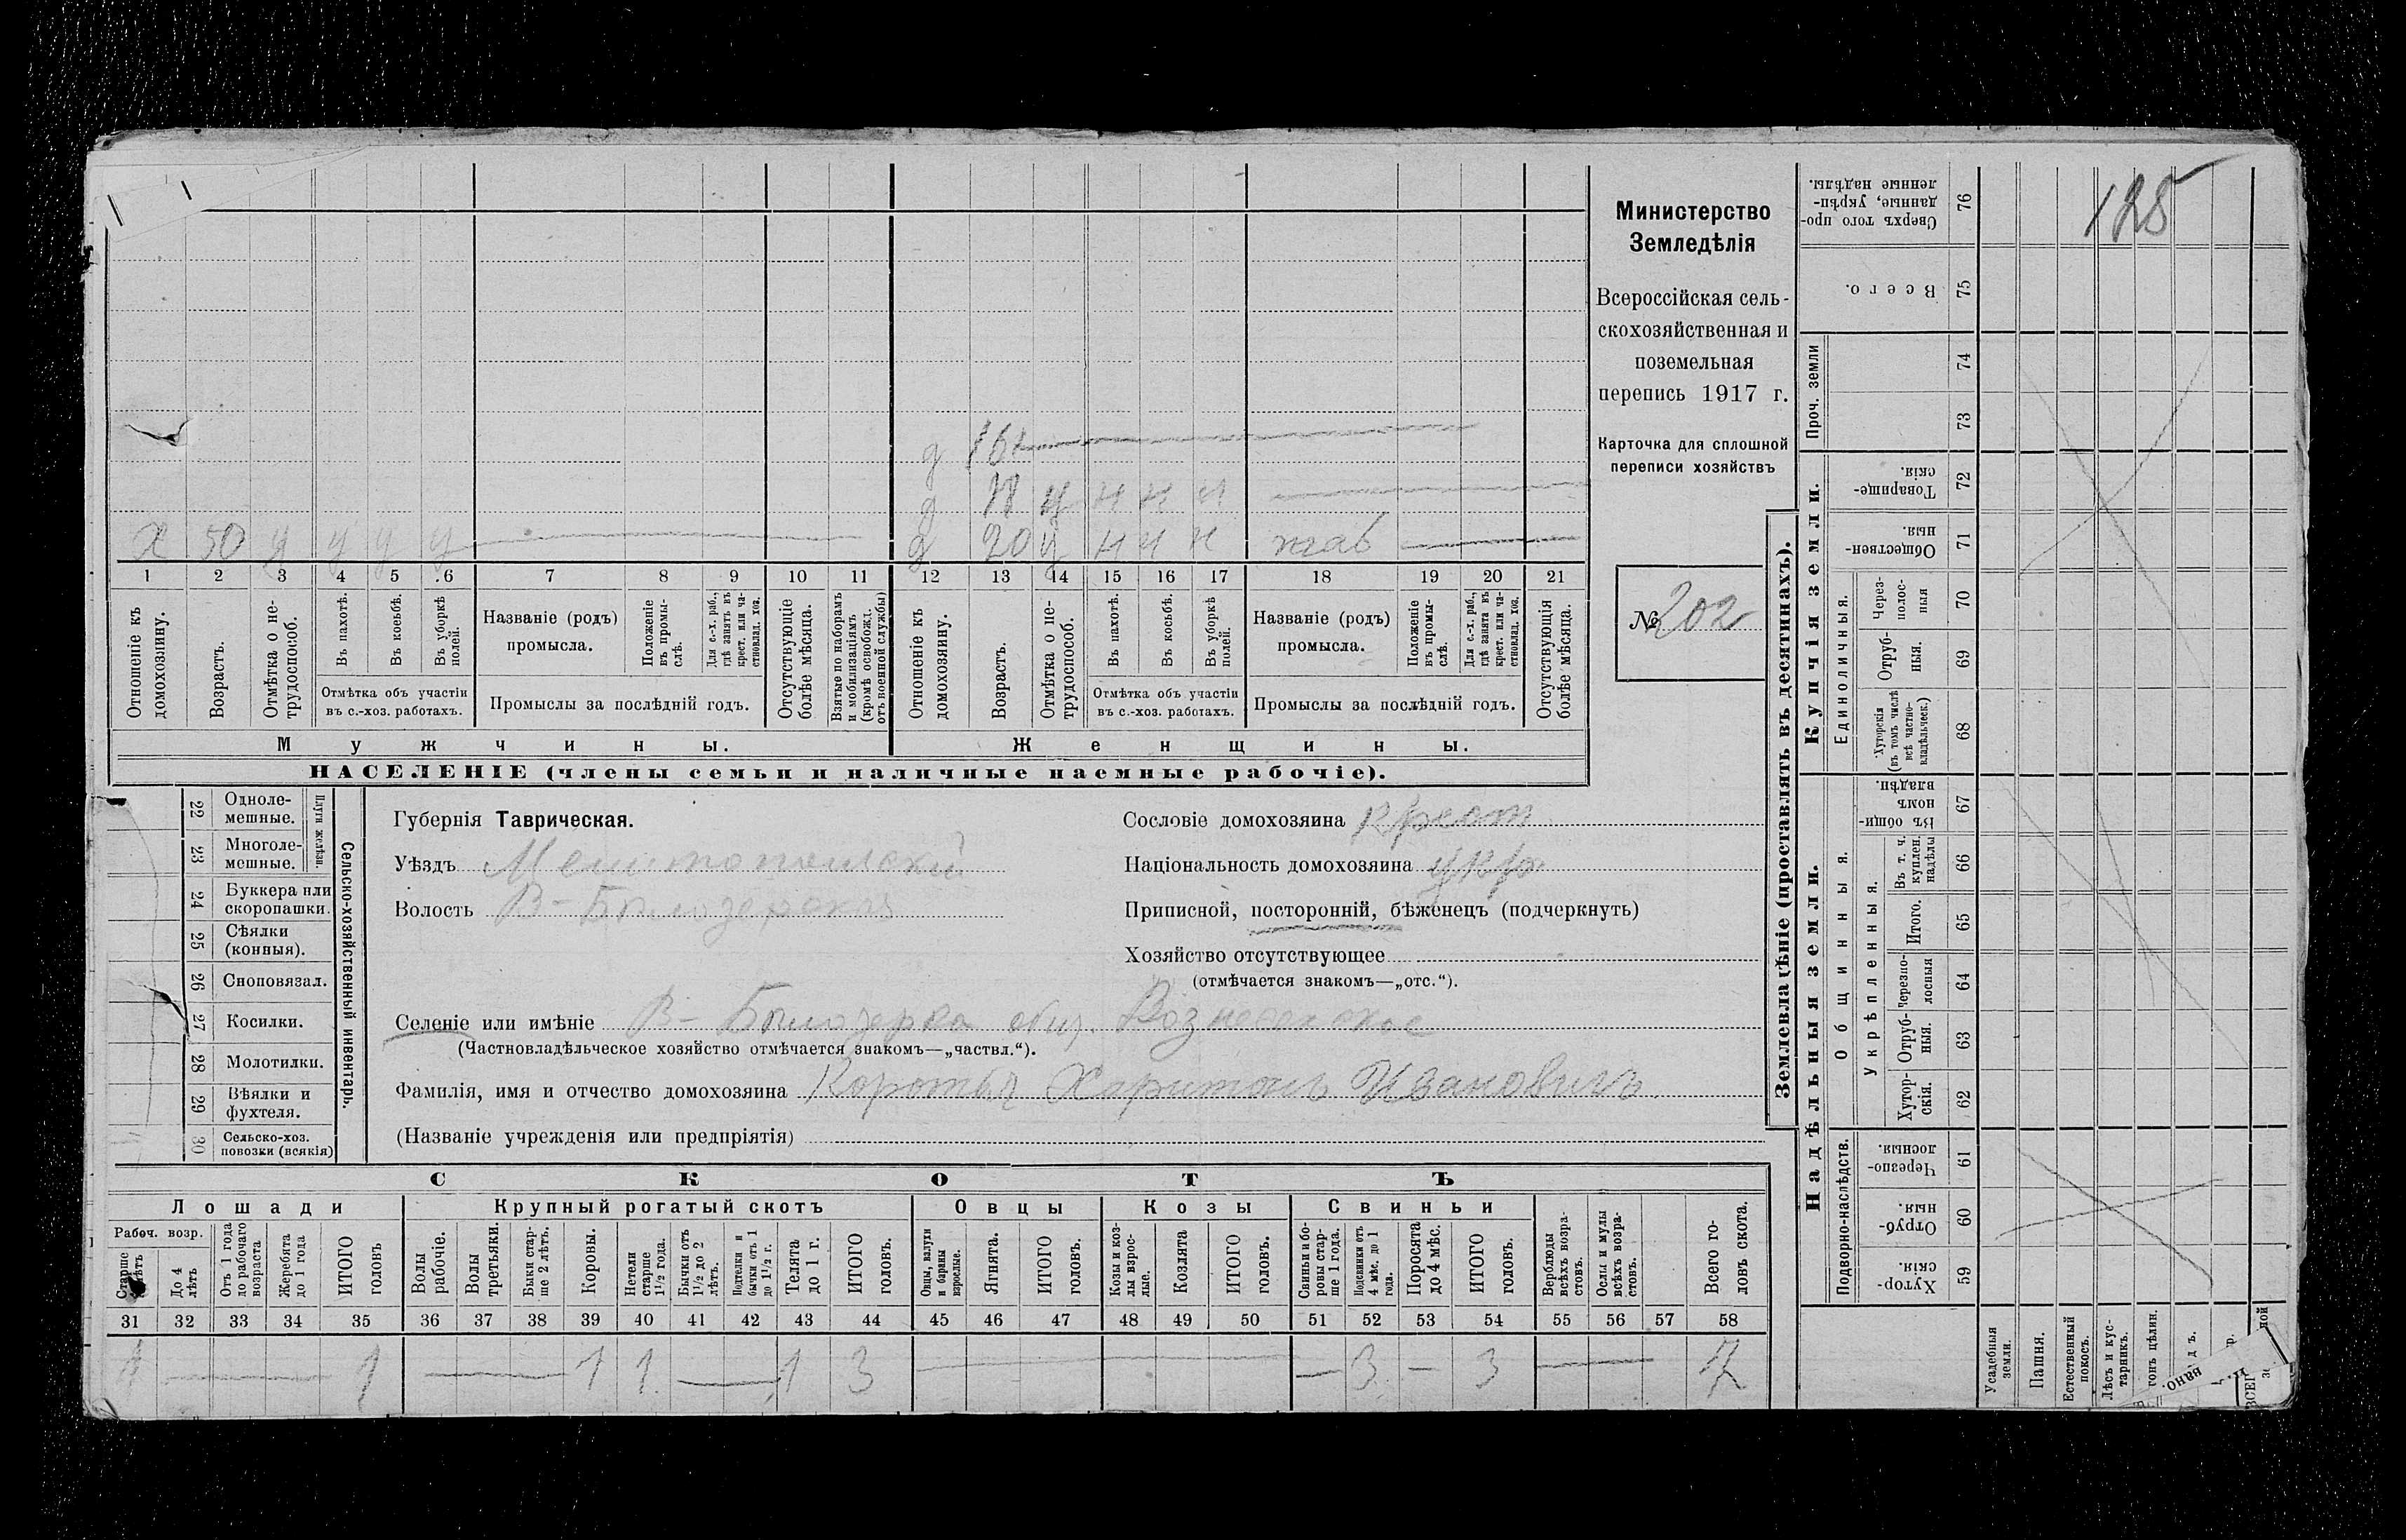 Министерство
Земледѣлія
Всероссійская сель-
скохозяйственная и
поземельная
перепись 1917 г.
Карточка для сплошной
переписи хозяйствъ
№ 202
125
д
д н н н
х 50 у у у у д 20 у н н н
1 2 3 4 5 6 7 8 9 10 11 12 13 14 15 16 17 18 19 20 21
Отношеніе къ домохозяину.
Возрастъ.
Отмѣтка о не-трудоспособ.
Въ пахотѣ.
Въ косьбѣ.
Въ уборкѣ полей.
Отмѣтка объ участіи
въ с.-хоз. работахъ.
Названіе (родъ)
промысла.
Положеніе въ промы-слѣ.
Для с.-х. раб., гдѣ занятъ въ крест. или ча-стновлад. хоз.
Промыслы за послѣдній годъ.
Отсутствующіе болѣе мѣсяца.
Взятые по наборамъ и мобилизаціямъ (кромѣ освобожд. отъ военной службы)
Отношеніе къ домохозяину.
Возрастъ.
Отмѣтка о не-трудоспособ.
Въ пахотѣ.
Въ косьбѣ.
Въ уборкѣ полей.
Отмѣтка объ участіи
въ с.-хоз. работахъ.
Названіе (родъ)
промысла.
Положеніе въ промы-слѣ.
Для с.-х. раб., гдѣ занята въ крест. или ча-стновлад. хоз.
Промыслы за послѣдній годъ.
Отсутствующія болѣе мѣсяца.
Мужчины. Женщины.
НАСЕЛЕНІЕ (члены семьи и наличные наемные рабочіе).
22 Одноле-мешные.
23 Многоле-мешные.
Плуги желѣзн.
24 Буккера или скоропашки.
25 Сѣялки (конныя).
26 Сноповязал.
27 Косилки.
28 Молотилки.
29 Вѣялки и фухтеля.
30 Сельско-хоз. повозки (всякія)
Сельско-хозяйственный инвентарь.
Губернія Таврическая.
Уѣздъ Мелитопольскій
Волость В-Бѣлозерская
Сословіе домохозяина крест
Національность домохозяина укр
Приписной, посторонній, бѣженецъ (подчеркнуть)
Хозяйство отсутствующее
(отмѣчается знакомъ—„отс.“).
Селеніе или имѣніе В-Бѣлозерка общ. Вознесенское
(Частновладѣльческое хозяйство отмѣчается знакомъ—„частвл.“).
Фамилія, имя и отчество домохозяина Коротыч Харитонъ Ивановичъ
(Названіе учрежденія или предпріятія)
СКОТЪ
Лошади Крупный рогатый скотъ Овцы Козы Свиньи
Рабоч. возр.
Старше лѣтъ
До 4 лѣтъ
Отъ 1 года до рабочаго возраста
Жеребята до 1 года
ИТОГО головъ
Волы рабочіе.
Волы третьяки.
Быки стар-ше 2 лѣтъ.
Коровы.
Нетели старше 1½ года.
Бычки отъ 1½ до 2 лѣтъ.
Подтелки и бычки отъ 1 до 1½ г.
Телята до 1 г.
ИТОГО головъ.
Овцы, валухи и бараны взрослые.
Ягнята.
ИТОГО головъ.
Козы и коз-лы взрос-лые.
Козлята
ИТОГО головъ.
Свиньи и бо-ровы стар-ше 1 года.
Подсвинки отъ 4 мѣс. до 1 года.
Поросята до 4 мѣс.
ИТОГО головъ.
Верблюды всѣхъ возра-стовъ.
Ослы и мулы всѣхъ возра-стовъ.
Всего го-ловъ скота.
31 32 33 34 35 36 37 38 39 40 41 42 43 44 45 46 47 48 49 50 51 52 53 54 55 56 57 58
1 1 1 1 1 3 3 3 7
Землевладѣніе (проставлять въ десятинахъ).
Надѣльныя земли.
Купчія земли.
Проч. земли
Подворно-наслѣдств.
Общинныя.
Укрѣпленныя.
Единоличныя.
59 Хутор-скія.
60 Отруб-ныя.
61 Черезпо-лосныя.
62 Хутор-скія.
63 Отруб-ныя.
64 Черезпо-лосныя
65 Итого.
66 Въ т. ч. куплен. надѣлы
67 Въ общин-номъ владѣн.
68 Хуторскія (въ томъ числѣ всѣ частно-владѣльческ.)
69 Отруб-ныя.
70 Через-полос-ныя
71 Обществен-ныя.
72 Товарище-скія.
73
74
75 Всего.
76 Сверхъ того про-данные, укрѣп-ленные надѣлы.
Усадебныя земли.
Пашня.
Естественный покосъ.
Лѣсъ и кус-тарникъ.